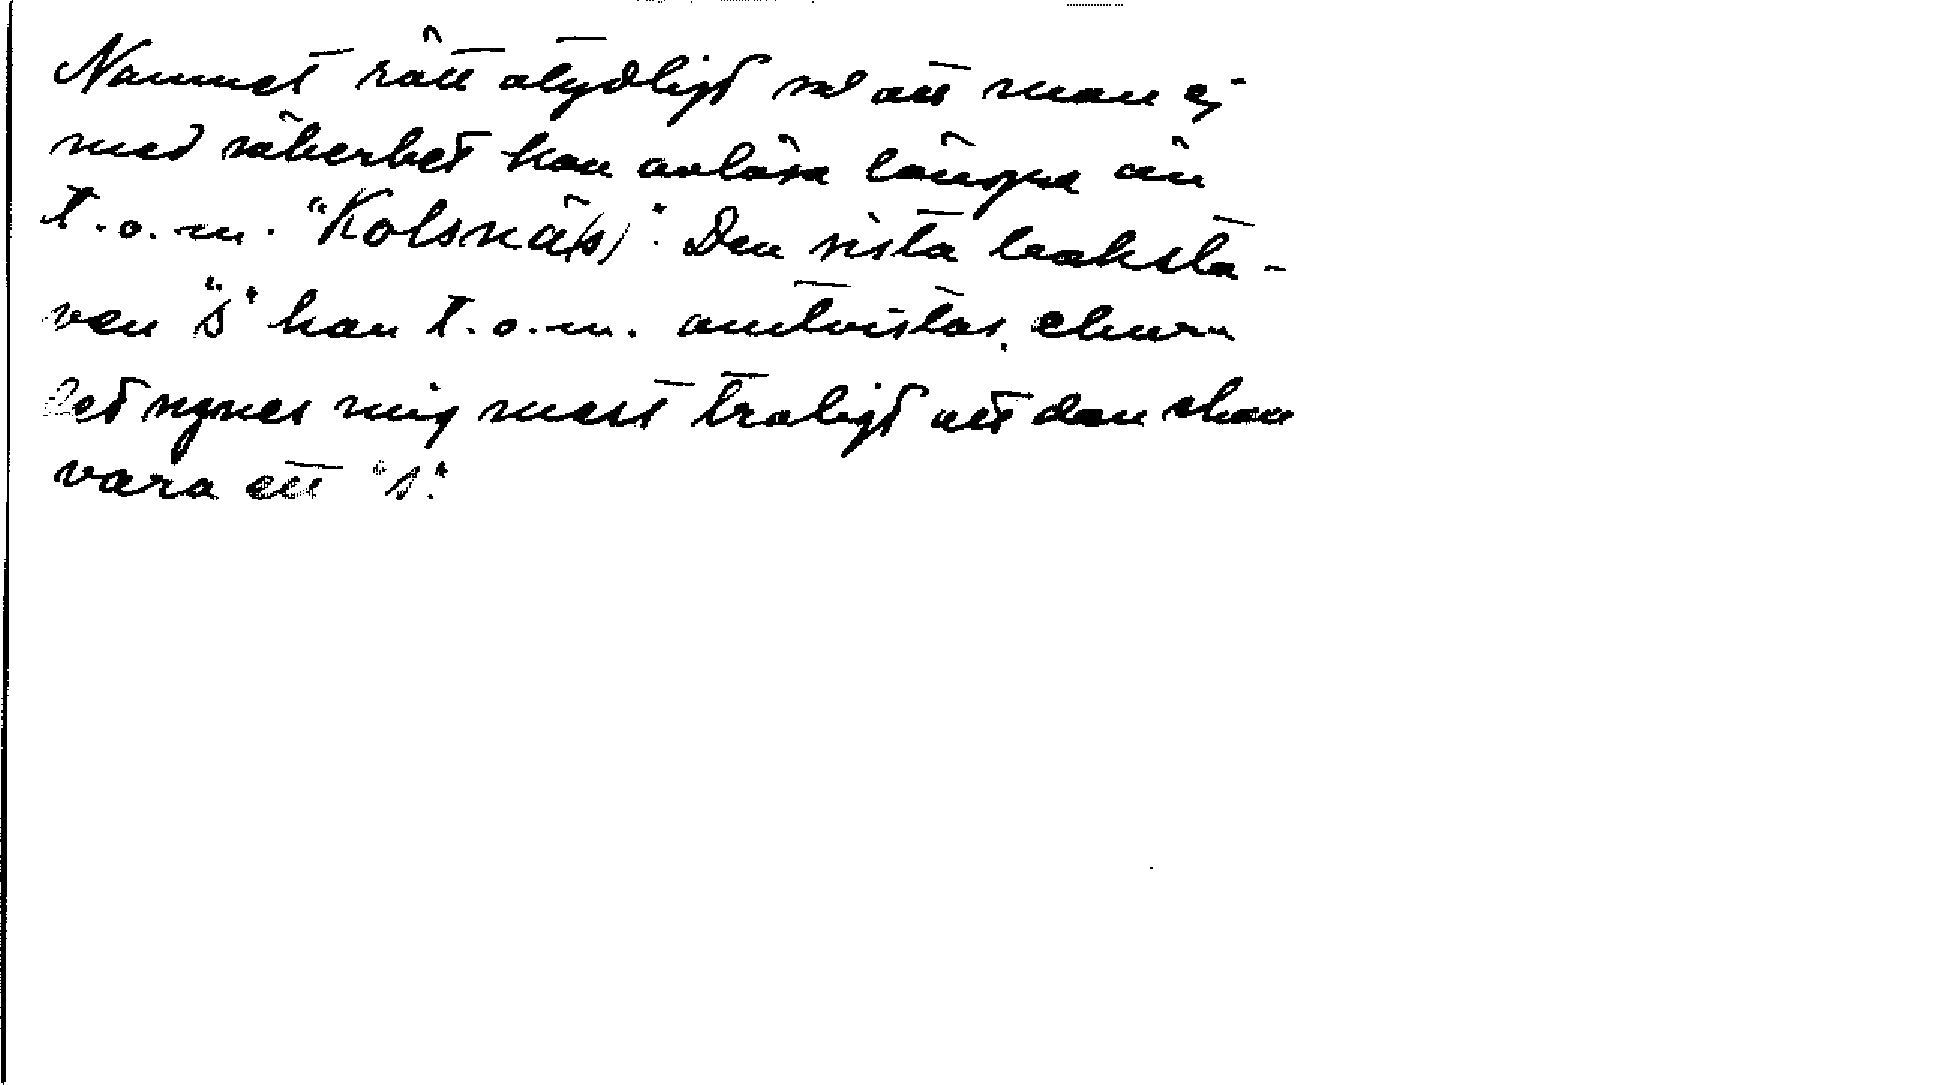 Namnet rätt otydligt så att man ej
med säkerhet kan avläsa längre än
t.o.m. "Kolsnä(s)". Den sista boksta-
ven "s" kan t.o.m. omtvistas, ehuru
det synes mig mest troligt att den skall
vara ett "s".